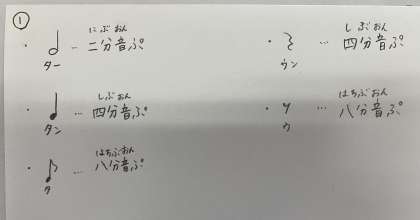 ①
にぶおん
・ … 二分音ぷ
ター
しぶおん
・ … 四分音ぷ
タン
はちぶおん
・ … 八分音ぷ
タ
しぶおん
・ … 四分音ぷ
ウン
はちぶおん
・ … 八分音ぷ
ウ